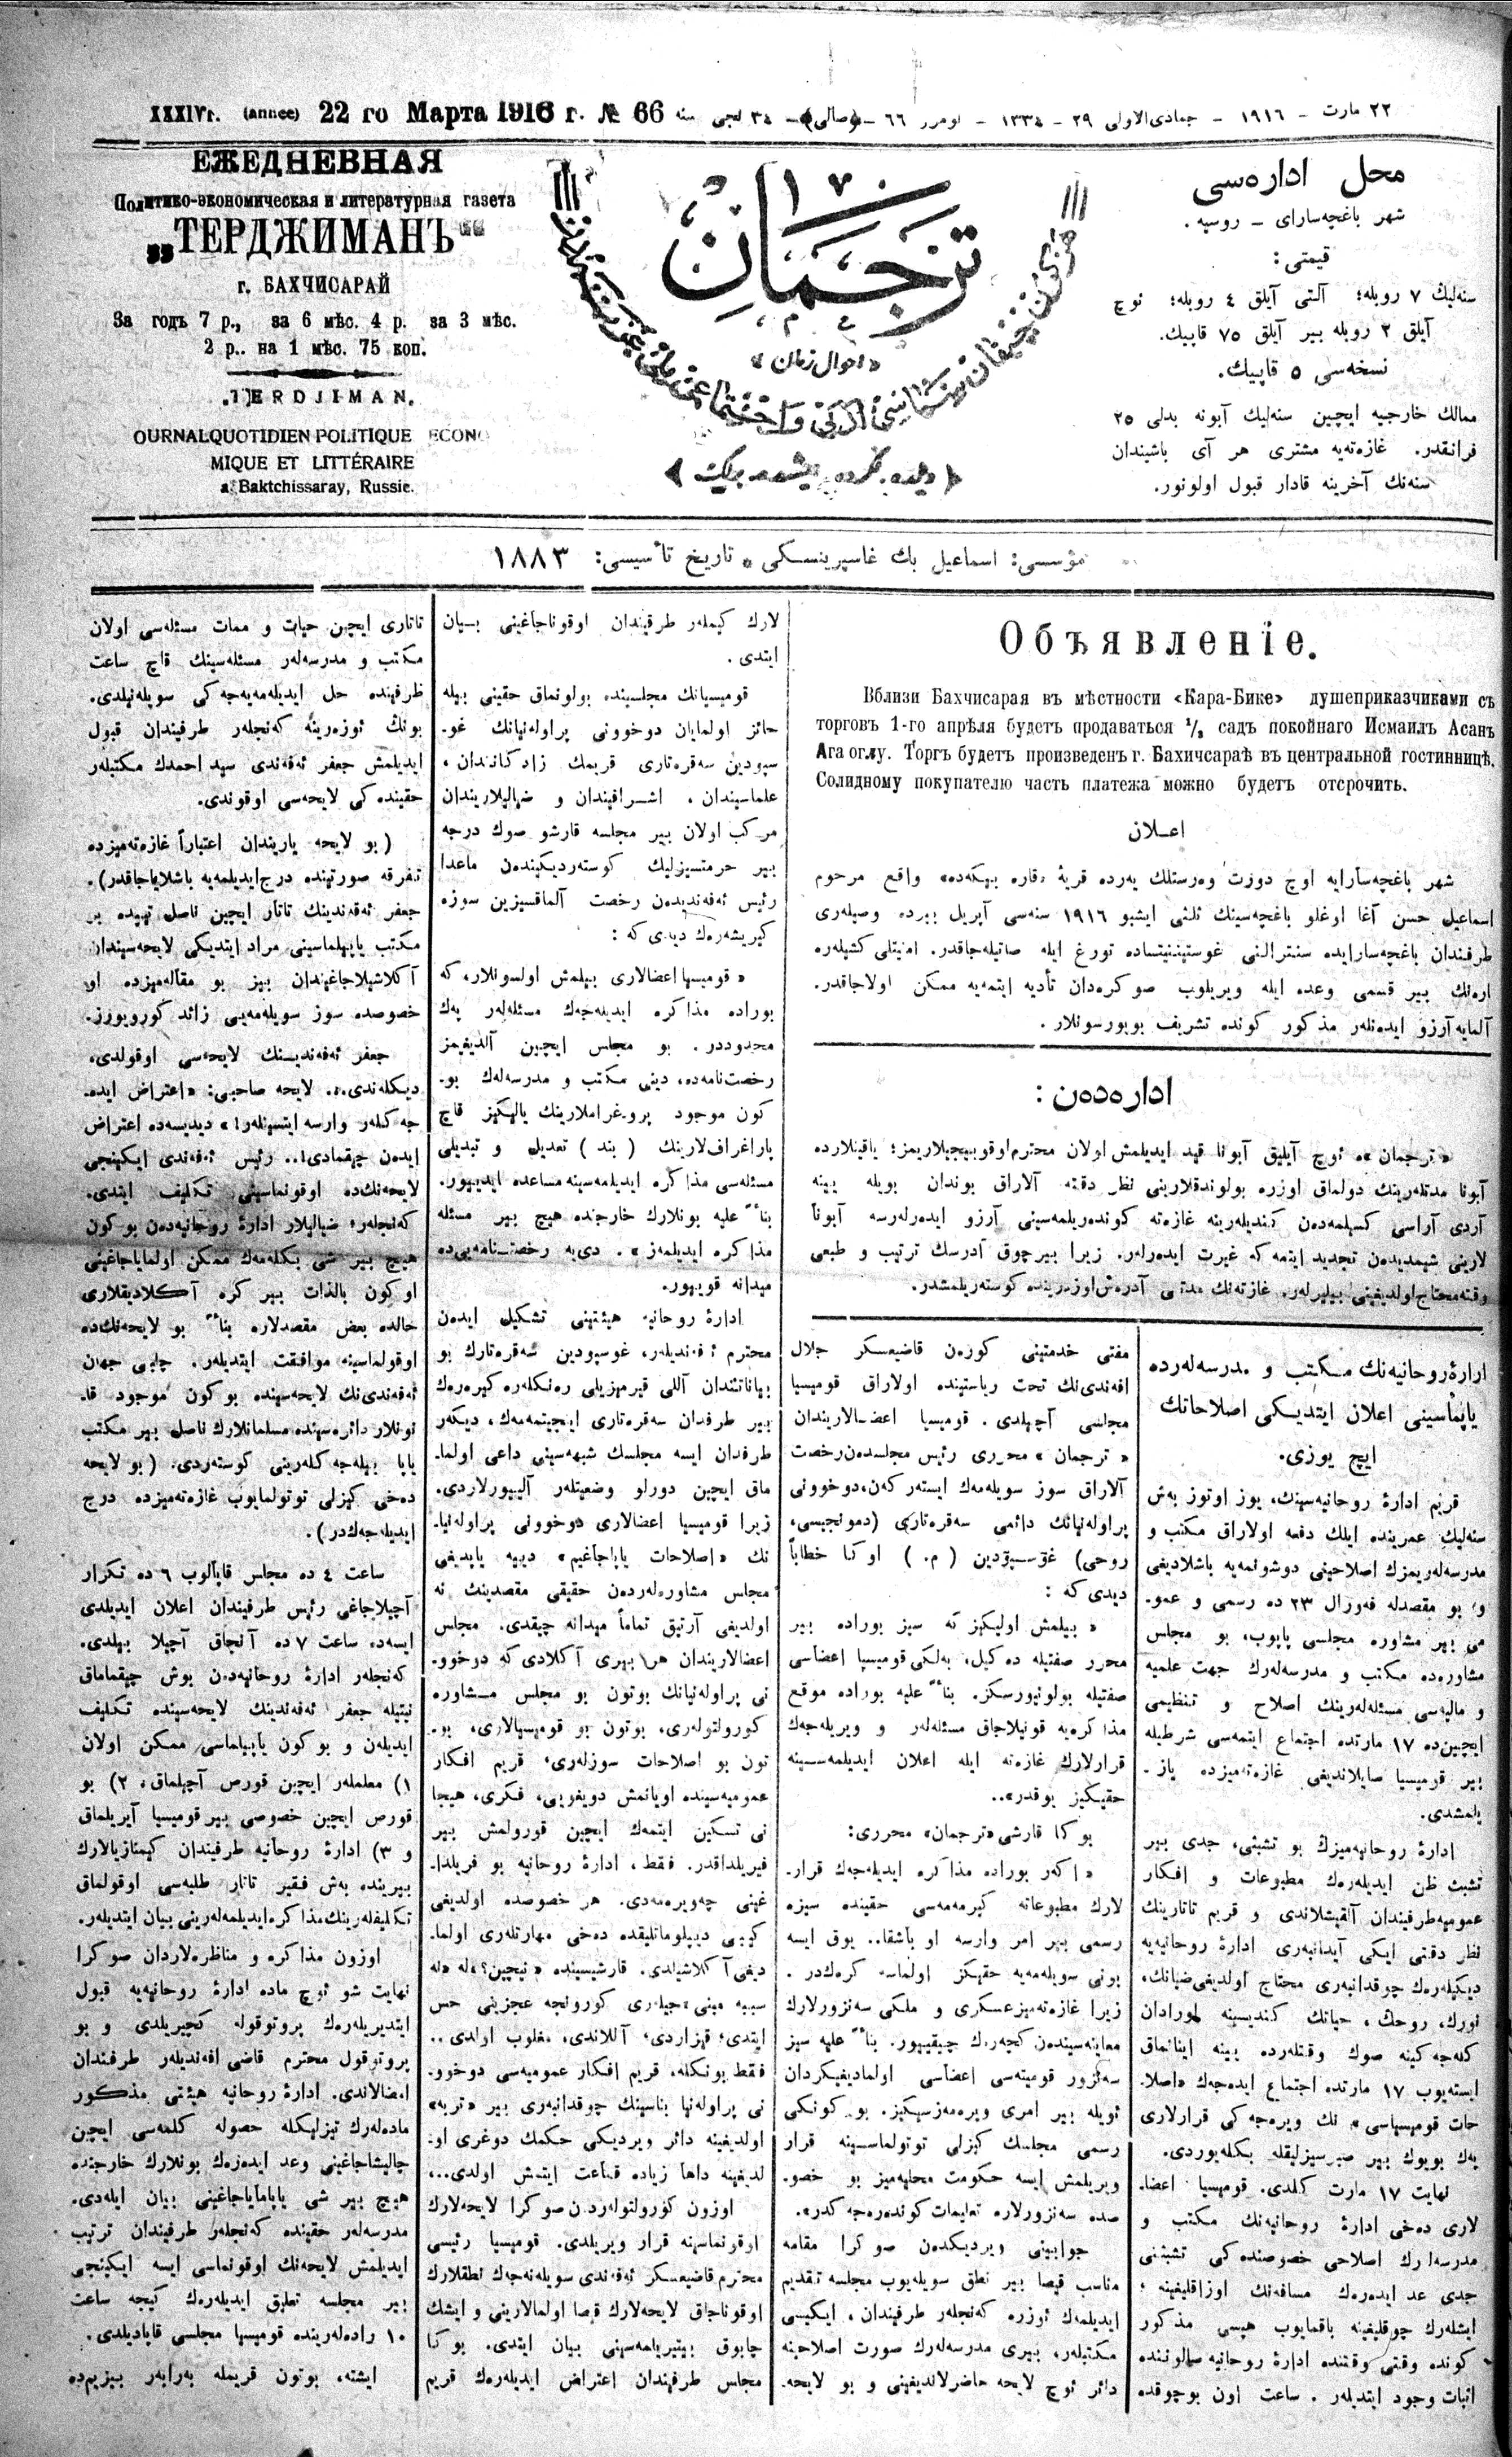 XXXIVг. (annee) 22 го Марта 1916 г. № 66
٢٢ مارت - ١٩١٦ - جمادی‌الاولی ٢٩ - ١٣٣٤ - نومرر ٦٦ - (صالی) - ٣٤ نجی سنه
ЕЖЕДНЕВНАЯ
Политико-экономическая и литературная газета
„ТЕРДЖИМАНЪ“
г. БАХЧИСАРАЙ
За годъ 7 р., за 6 мѣс. 4 р. за 3 мѣс.
2 р.. на 1 мѣс. 75 коп.
„TERDJIMAN„
OURNAL QUOTIDIEN POLITIQUE ECONO
MIQUE ET LITTÉRAIRE
a Baktchissaray, Russie.
ترجمان
«احوال زمان»
محل اداره‌سی
شهر باغچه‌سارای ــ روسیه.
قیمتی:
سنه‌لیك ٧ روبله؛ آلتی آیلق ٤ روبله؛ ئوچ
آیلق ٢ روبله بیر آیلق ٧٥ قاپیك.
نسخه‌سی ٥ قاپیك.
ممالك خارجیه ایچین سنه‌لیك آبونه بدلی ٢٥
فرانقدر. غازه‌ته‌یه مشتری هر آی باشیندان
سنه‌نك آخرینه قادار قبول اولونور.
مؤسسی: اسماعیل بك غاسپرینسکی * تاریخ تأسیسی: ١٨٨٣
Объявленіе.
Вблизи Бахчисарая въ мѣстности «Кара-Бике» душеприказчиками съ
торговъ 1-го апрѣля будетъ продаваться ⅓ садъ покойнаго Исмаилъ Асанъ
Ага оглу. Торгъ будетъ произведенъ г. Бахичсараѣ въ центральной гостинницѣ.
Солидному покупателю часть платежа можно будетъ отсрочить.
اعلان
شهر باغچه‌سارایه اوچ دورت وه‌رستلك یه‌رده قریۀ «قاره بیکه‌ده» واقع مرحوم
اسماعیل حسن آغا اوغلو باغچه‌سینك ثلثی ایشبو ١٩١٦ سنه‌سی آپریل بیرده وصیله‌ری
طرفندان باغچه‌سارایده سنترالنی غوستیننیتساده تورغ ایله صاتیله‌جاقدر. امنیتلی کشیلره
اره‌نك بیر قسمی وعده ایله ویریلوب صوکره‌دان تأدیه ایتمه‌یه ممکن اولاجاقدر.
آلمایه آرزو ایده‌نلر مذکور کونده تشریف بویورسونلار.
اداره‌دن:
«ترجمان»ه ئوچ آیلیق آبونا قید ایدیلمش اولان محترم اوقوییجیلاریمز؛ یاقینلارده
آبونا مدتله‌رینك دولماق اوزره بولوندقلارینی نظر دقته آلاراق بوندان بویله یینه
آردی آراسی کسیلمه‌دن کندیله‌رینه غازه‌ته کونده‌ریلمه‌سینی آرزو ایده‌رله‌رسه آبونا
لارینی شیمدیدن تجدید ایتمه‌که غیرت ایده‌رلر. زیرا بیر چوق آدرسك ترتیب و طبعی
وقته محتاج اولدیغنی بیلیرلر. غازته‌نك مدتی آدره‌س اوزه‌رینده کوسته‌ریلمشدر.
ادارۀ روحانیه‌نك مکتب و مدرسه‌لرده
یاپماسینی اعلان ایتدیکی اصلاحاتك
ایچ یوزی.
قریم ادارۀ روحانیه‌سینك، یوز اوتوز به‌ش
سنه‌لیك عمرینده ایلك دفعه اولاراق مکتب و
مدرسه‌له‌ریمزك اصلاحینی دوشونمه‌یه باشلادیغی
و بو مقصدله فه‌ورال ٢٣ ده رسمی و عمو-
می بیر مشاوره مجلسی یاپوب، بو مجلس
مشاوره‌ده مکتب و مدرسه‌له‌رك جهت علمیه
و مالیه‌سی مسئله‌له‌رینك اصلاح و تنظیمی
ایچین‌ده ١٧ مارتده اجتماع ایتمه‌سی شرطیله
بیر قومیسیا صایلاندیغی غازه‌ته‌میزده یاز-
یلمشدی.
ادارۀ روحانیه‌میزك بو تشبثی، جدی بیر
تشبث ظن ایدیله‌ره‌ك مطبوعات و افکار
عمومیه طرفیندان آلقیشلاندی و قریم تاتارینك
نظر دقتی ایکی آیدانبه‌ری ادارۀ روحانیه‌یه
دیکیله‌ره‌ك چوقدانبه‌ری محتاج اولدیغی ضیانك،
نورك، روحك، حیاتك کندیسینه اورادان
کله‌جه‌کینه صوك وقتله‌رده یینه اینانماق
ایسته‌یوب ١٧ مارتده اجتماع ایده‌جه‌ك «اصلا-
حات قومیسیاسی» نك ویره‌جه‌کی قرارلاری
په‌ك بویوك بیر صبرسیزلیقله بکله‌یوردی.
نهایت ١٧ مارت کلدی. قومیسیا اعضا-
لاری ده‌خی ادارۀ روحانیه‌نك مکتب و
مدرسه‌لرك اصلاحی خصوصنده‌کی تشبثنی
جدی عد ایده‌ره‌ك مسافه‌نك اوزاقلیغینه ؛
ایشله‌رك چوقلیغینه باقمایوب هپسی مذکور
کونده وقتی وقتنده ادارۀ روحانیه صالوننده
اثبات وجود ایتدیلر. ساعت اون بوچوقده
مفتی خدمتینی کوره‌ن قاضیعسکر جلال
افه‌ندی‌نك تحت ریاستینده اولاراق قومیسیا
مجلسی آچیلدی. قومیسیا اعضالاریندان
«ترجمان» محرری رئیس مجلسدن رخصت
آلاراق سوز سویله‌مه‌ك ایسته‌رکه‌ن، دوخوونی
پراوله‌نیانك دائمی سه‌قره‌تاری
دیدی که :
«بیلمش اولیکیز که سیز بوراده بیر
محرر صفتیله ده‌کیل، به‌لکی قومیسیا اعضاسی
صفتیله بولونیورسکز. بناءً علیه بوراده موقع
مذاکره‌یه قونیلاجاق مسئله‌لر و ویریله‌جه‌ك
قرارلارك غازه‌ته ایله اعلان ایدیلمه‌سینه
حقیکیز یوقدر»..
بوکا قارشی «ترجمان» محرری:
«اکه‌ر بوراده مذاکره ایدیله‌جه‌ك قرار-
لارك مطبوعاته کیرمه‌مه‌سی حقینده سیزه
رسمی بیر امر وارسه او باشقا.. یوق ایسه
بونی سویله‌مه‌یه حقیکز اولماسه کره‌کدر.
زیرا غازه‌ته‌میز عسکری و ملکی سه‌نزورلارك
معاینه‌سیندن کچه‌ره‌ك چیقیور. بناءً علیه سیز
سه‌نزور قومیته‌سی اعضاسی اولمادیغیکزدان
ئویله بیر امری ویره‌مه‌زسیکیز. بو کونکی
رسمی مجلسك کیزلی توتولماسینه قرار
ویریلمش ایسه حکومت محلیه‌میز بو خصو-
صده سه‌نزورلاره تعلیمات کونده‌ره‌جه‌کدر».
جوابینی ویردیکدن صوکرا مقامه
مناسب قیصا بیر نطق سویله‌یوب مجلسه تقدیم
ایدیلمه‌ك ئوزره که‌نجلر طرفیندان، ایکیسی
مکتبلر، بیری مدرسه‌له‌رك صورت اصلاحنه
دائر ئوچ لایحه حاضرلاندیغینی و بو لایحه-
لارك کیمله‌ر طرفیندان اوقوناجاغینی بیان
ایتدی.
قومیسیانك مجلسینده بولونماق حقینی بیله
حائز اولمایان دوخوونی پراوله‌نیانك غو-
سپودین سه‌قره‌تاری قریمك زادکانندان،
علماسیندان، اشرافیندان و ضیالیلاریندان
مرکب اولان بیر مجلسه قارشو صوك درجه
بیر حرمتسیزلیك کوسته‌ردیکیندن ماعدا
رئیس ئه‌فه‌ندیدن رخصت آلماقسیزین سوزه
کیریشه‌ره‌ك دیدی که :
«قومیسیا اعضالاری بیلمش اولسونلار، که
بوراده مذاکره ایدیله‌جه‌ك مسئله‌لر په‌ك
محدوددر. بو مجلس ایچین آلدیغیمز
رخصت‌نامه‌ده، دینی مکتب و مدرسه‌له‌ك بو-
کون موجود پروغراملارینك یالیکیز قاچ
پاراغراف‌لارینك (بند) تعدیل و تبدیلی
مسئله‌سی مذاکره ایدیلمه‌سینه مساعده ایدیییور.
بناءً علیه بونلارك خارجنده هیچ بیر مسئله
مذاکره ایدیلمه‌ز». دی‌یه رخصت‌نامه‌یی‌ده
میدانه قوییور.
ادارۀ روحانیه هیئتینی تشکیل ایده‌ن
محترم ئه‌فه‌ندیلر، غوسپودین سه‌قره‌تارك بو
بیاناتندان آللی قیرمیزیلی ره‌نکله‌ره کیره‌ره‌ك
بیر طرفدان سه‌قره‌تاری اینجیتمه‌مه‌ك، دیکه‌ر
طرفدان ایسه مجلسك شبهه‌سینی داعی اولما-
ماق ایچین دورلو وضعیتلر آلییورلاردی.
زیرا قومیسیا اعضالاری دوخوونی پراوله‌نیا-
نك «اصلاحات یاپاجاغیم» دییه یاپدیغی
مجلس مشاوره‌لردن حقیقی مقصدینك نه
اولدیغی آرتیق تماماً میدانه چیقدی. مجلس
اعضالاریندان هر بیری آکلادی که دوخوو-
نی پراوله‌نیانك بوتون بو مجلس مشاوره
کورولتوله‌ری، بوتون بو قومیسیالاری، بو-
تون بو اصلاحات سوزله‌ری؛ قریم افکار
عمومیه‌سینده اویانمش دویغویی، فکری، هیجا
نی تسکین ایتمه‌ك ایچین قورولمش بیر
فیریلداقدر. فقط، ادارۀ روحانیه بو فریلدا-
غینی چه‌ویره‌مه‌دی. هر خصوصده اولدیغی
کیبی دیپلوماتلیقده ده‌خی مهارتله‌ری اولما-
دیغی آکلاشیلدی.
ایتدی؛ قیزاردی، آللاندی، مغلوب اولدی..
فقط بونکله، قریم افکار عمومیه‌سی دوخوو-
نی پراوله‌نیا بناسینك چوقدانبه‌ری بیر «تربه»
اولدیغینه دائر ویردیکی حکمك دوغری او-
لدیغینه داها زیاده قناعت ایتمش اولدی...
اوزون کورولتولردن صوکرا لایحه‌لارك
اوقونماسینه قرار ویریلدی. قومیسیا رئیسی
محترم قاضیعسکر ئه‌فه‌ندی سویله‌نه‌جه‌ك نطقلارك
اوقوناجاق لایحه‌لارك قیصا اولمالارینی و ایشك
چابوق بیتیریلمه‌سینی بیان ایتدی. بوکا
مجلس طرفیندان اعتراض ایدیله‌ره‌ك قریم
تاتاری ایچین حیات و ممات مسئله‌سی اولان
مکتب و مدرسه‌لر مسئله‌سینك قاچ ساعت
ظرفینده حل ایدیله‌مه‌یه‌جه‌کی سویله‌نیلدی.
بونك ئوزه‌رینه که‌نجلر طرفیندان قبول
ایدیلمش جعفر ئه‌فه‌ندی سید احمدك مکتبلر
حقینده‌کی لایحه‌سی اوقوندی.
(بو لایحه یاریندان اعتباراً غازه‌ته‌میزده
تفرقه صورتینده درج ایدیلمه‌یه باشلایاجاقدر).
جعفر ئه‌فه‌ندینك تاتار ایچین ناصل تیپده بر
مکتب یاپیلماسینی مراد ایتدیکی لایحه‌سیندان
آکلاشیلاجاغیندان بیز بو مقاله‌میزده او
خصوصده سوز سویله‌مه‌یی زائد کورویورز.
جعفر ئه‌فه‌ندینك لایحه‌سی اوقولدی،
دیکله‌ندی.. لایحه صاحبی: «اعتراض ایده-
جه‌کلر وارسه ایتسینلر!» دیدیسه‌ده اعتراض
ایده‌ن چیقمادی!.. رئیس ئه‌فه‌ندی ایکینجی
لایحه‌نك‌ده اوقونماسینی تکلیف ایتدی.
که‌نجلر، ضیالیلار ادارۀ روحانیه‌دن بو کون
هیچ بیر شی بکله‌مه‌ك ممکن اولمایاجاغینی
او کون بالذات بیر کره آکلادیقلاری
حالده بعض مقصدلاره بناءً بو لایحه‌نك‌ده
اوقولماسینه موافقت ایتدیلر. چلبی جهان
ئه‌فه‌ندی‌نك لایحه‌سینده بو کون موجود قا-
نونلار دائره‌سینده مسلمانلارك ناصل بیر مکتب
یاپا بیله‌جه‌کله‌رینی کوسته‌ردی. (بو لایحه
ده‌خی کیزلی توتولمایوب غازه‌ته‌میزده درج
ایدیله‌جه‌کدر).
ساعت ٤ ده مجلس قاپالوب ٦ ده تکرار
آچیلاجاغی رئیس طرفیندان اعلان ایدیلدی
ایسه‌ده ساعت ٧ ده آنجاق آچیلا بیلدی.
که‌نجلر ادارۀ روحانیه‌دن بوش چیقماماق
نیتیله جعفر ئه‌فه‌ندینك لایحه‌سینده تکلیف
ایدیلن و بو کون یاپیلماسی ممکن اولان
١) معلملر ایچین قورص آچیلماق، ٢) بو
قورص ایچین خصوصی بیر قومیسیا آیریلماق
و ٣) ادارۀ روحانیه طرفیندان کیمنازیالارك
بیرینده به‌ش فقیر تاتار طلبه‌سی اوقولماق
تکلیفله‌رینك مذاکره ایدیلمه‌له‌رینی بیان ایتدیلر.
اوزون مذاکره و مناظره‌لاردان صوکرا
نهایت شو ئوچ ماده ادارۀ روحانیه‌یه قبول
ایتدیریله‌ره‌ك پروتوقوله کچیریلدی و بو
پروتوقول محترم قاضی افه‌ندیلر طرفندان
امضالاندی. ادارۀ روحانیه هیئتی مذکور
ماده‌له‌رك تیزلیکله حصوله کلمه‌سی ایچین
چالیشاجاغینی وعد ایده‌ره‌ك بونلارك خارجنده
هیچ بیر شی یاپامایاجاغینی بیان ایله‌دی.
مدرسه‌لر حقینده که‌نجلر طرفیندان ترتیب
ایدیلمش لایحه‌نك اوقونماسی ایسه ایکینجی
بیر مجلسه تعلیق ایدیله‌ره‌ك کیجه ساعت
١٠ راده‌له‌رینده قومیسیا مجلسی قاپادیلدی.
ایشته، بوتون قریمله به‌رابه‌ر بیزیم‌ده